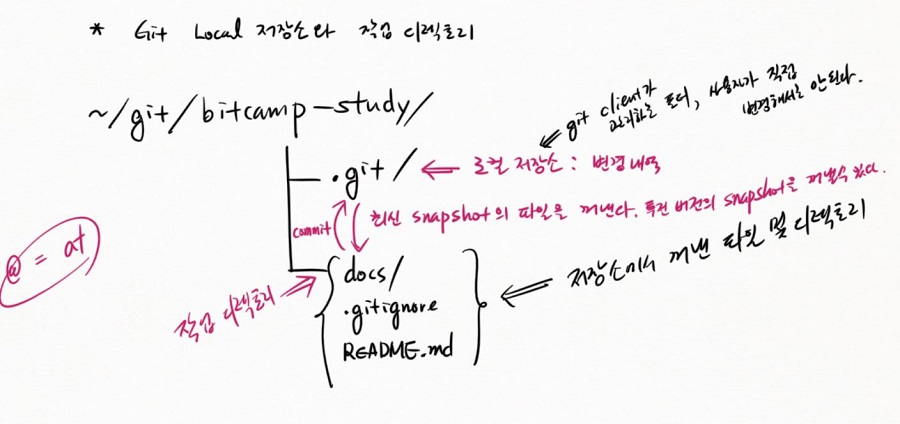 * Git Local 저장소와 작업 디렉토리
~/git/bitcamp-study/
⇐ git client가
관리하는 폴더, 사용자가 직접
변경해서는 안된다.
.git/ ⇐ 로컬 저장소 : 변경 내역
commit
최신 snapshot의 파일을 꺼낸다. 특정 버전의 snapshot을 꺼낼수 있다.
@ = at
작업 디렉토리 ⇒
docs/
.gitignore
README.md
⇐ 저장소에서 꺼낸 파일 및 디렉토리